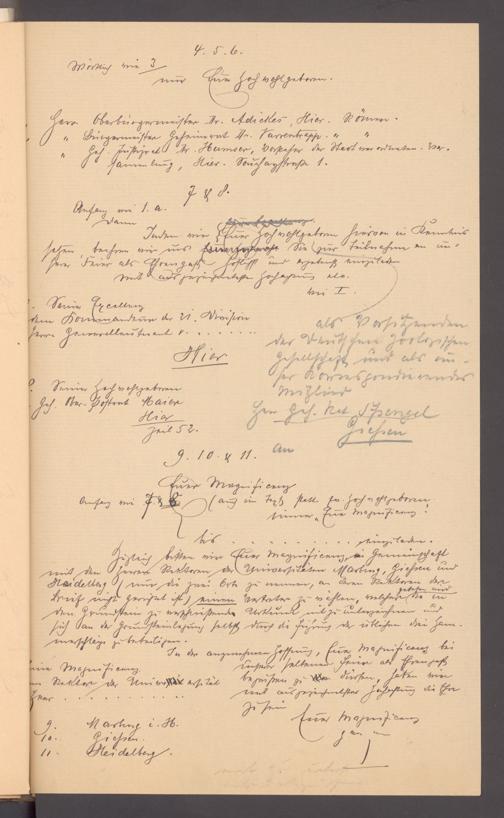 4. 5. 6.
Wörtlich wie 3
nur Euer Hochwohlgeboren.
Herr Oberbürgermeister Dr. Adickes, Hier.
" Bürgermeister Geheimrat Dr. Varrentrapp. " "
" Geh. Justizrat Dr. Humser, Vorsteher der Stadtverordneten-Ver-
sammlung, Hier.
7 & 8.
Anfang wie 1. a.
Dann
Indem wir Euer Hochwohlgeboren hiervon in Kenntnis
setzen, beehren wir uns Sie zur Teilnahme an un-
serer Feier als Ehrengast höflichst und ergebenst einzuladen
mit ausgezeichneter Hochachtung
wie I.
Seine Excellenz
dem Kommandeur der 21. Division
Herrn Generallieutenant v. . . . . . .
Hier
als Vorsitzenden
der Deutschen Zoologischen
Gesellschaft und als un-
ser korrespondierendes
Mitglied
Herr Geh. Rat Spengel
Giessen
Seiner Hochwohlgeboren
Geh. Ober-Postrat Maier
Hier
Zeil 52.
9. 10. & 11. An
Euer Magnificenz
Anfang wie 7 & 8 (auch im Text statt Ew. Hochwohlgeboren
immer „Eure Magnificenz"
bis . . . . . . . . . einzuladen.
Zugleich bitten wir Euer Magnificenz, in Gemeinschaft
mit den Herren Rektoren der Universitäten Marburg, Giessen und
Heidelberg (nur die zwei Orte zu nennen, an deren Rektoren der
Brief nicht gerichtet ist) einen Vertreter zu wählen, welcher die in
den Grundstein zu Urkunde mit zu unterzeichnen und
sich an der Grundsteinlegung selbst durch die Führung der üblichen drei Ham-
merschläge zu beteiligen.
In der angenehmen Hoffnung, Eure Magnificenz bei
unserer seltenen Feier als Ehrengast
begrüssen zu dürfen, haben wir
mit ausgezeichneter Hochachtung die Ehre
zu sein
Euer Magnificenz
Seine Magnificenz
den Rektor der Universität
Herr . . . . . . . . . .
9. Marburg i. H.
10. Giessen.
11. Heidelberg.